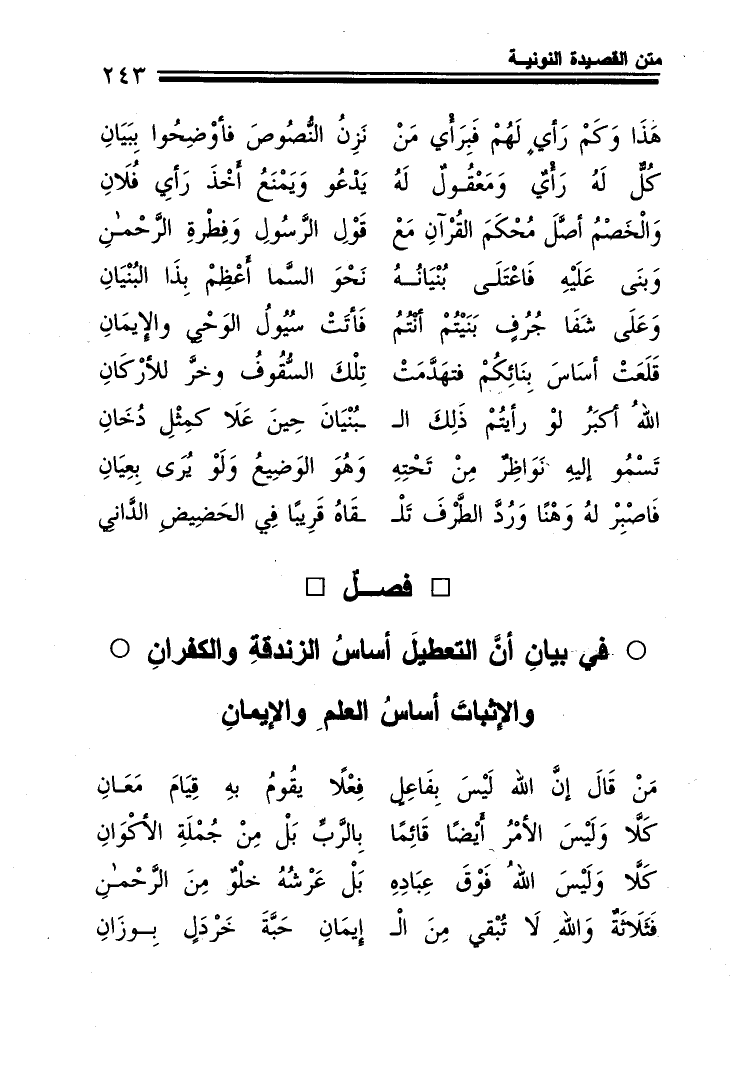 متن القصيدة النونيـة
٢٤٣
هَذَا وَكَمْ رَأيٍ لَهُمْ فَبِرَأْيِ مَنْ نَزِنُ النُّصُوصَ فأوْضِحُوا بِبَيَانِ
كُلٌّ لَهُ رَأْيٌ وَمَعْقُولٌ لَهُ يَدْعُو وَيَمْنَعُ أَخْذَ رَأيِ فُلَانِ
وَالْخَصْمُ أصَّلَ مُحْكَمَ القُرْآنِ مَعْ قَوْلِ الرَّسُولِ وَفِطْرةِ الرَّحْمٰنِ
وَبَنَى عَلَيْهِ فَاعْتَلَـى بُنْيَانُـهُ نَحْوَ السَّما أَعْظِمْ بِذَا البُنْيَانِ
وَعَلَى شَفَا جُرُفٍ بَنَيْتُمْ أنْتُمُ فَأتَتْ سُيُولُ الوَحْيِ والإيمَانِ
قَلَعَتْ أسَاسَ بِنَائِكُمْ فتهَدَّمَتْ تِلْكَ السُّقُوفُ وخرَّ للأرْكَانِ
اللهُ أكبَرُ لوْ رأيتُمْ ذَلِكَ الـ ـبُنْيَانَ حِينَ عَلَا كمِثْلِ دُخَانِ
تَسْمُو إليهِ نَوَاظِرٌ مِنْ تَحْتِهِ وَهُوَ الوَضِيعُ وَلَوْ يُرَى بِعِيَانِ
فَاصْبِرْ لهُ وَهْنًا وَرُدَّ الطَّرْفَ تَلْـ ـقَاهُ قَرِيبًا فِي الحَضِيضِ الدَّانِي
□ فصــلٌ □
○ في بيانِ أنَّ التعطيلَ أساسُ الزندقةِ والكفرانِ ○
والإثباتَ أساسُ العلمِ والإيمانِ
مَنْ قَالَ إنَّ اللهَ لَيْسَ بِفَاعِلٍ فِعْلًا يقُومُ بهِ قِيَامَ مَعَـانِ
كَلَّا وَلَيْسَ الأمْرُ أَيْضًا قَائِمًا بِالرَّبِّ بَلْ مِنْ جُمْلَةِ الأكْوَانِ
كَلَّا وَلَيْسَ اللهُ فَوْقَ عِبَادِهِ بَلْ عَرْشُهُ خلْوٌ مِنَ الرَّحْمٰنِ
فَثَلَاثَةٌ وَاللهِ لَا تُبْقي مِنَ الْـ إيمَانِ حَبَّةَ خَرْدَلٍ بِـوزَانِ